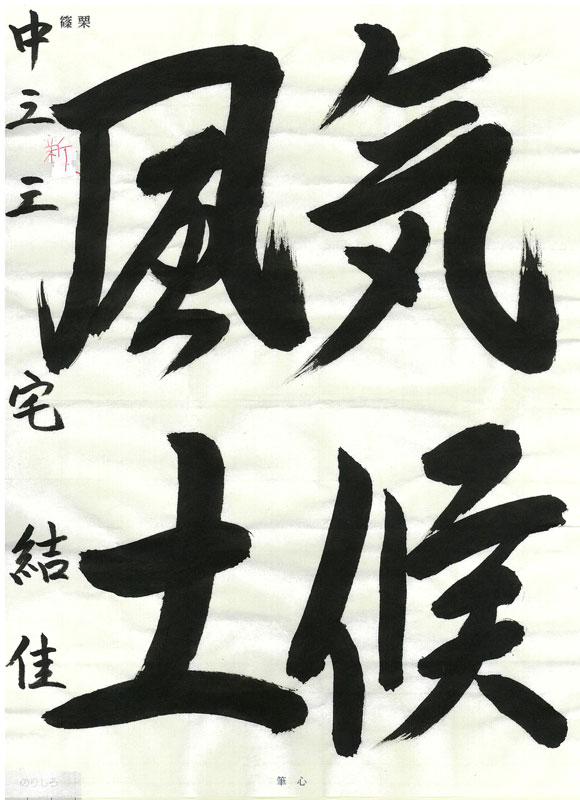 気候
風土
篠栗
中三 三宅結佳
新
筆心
のりしろ